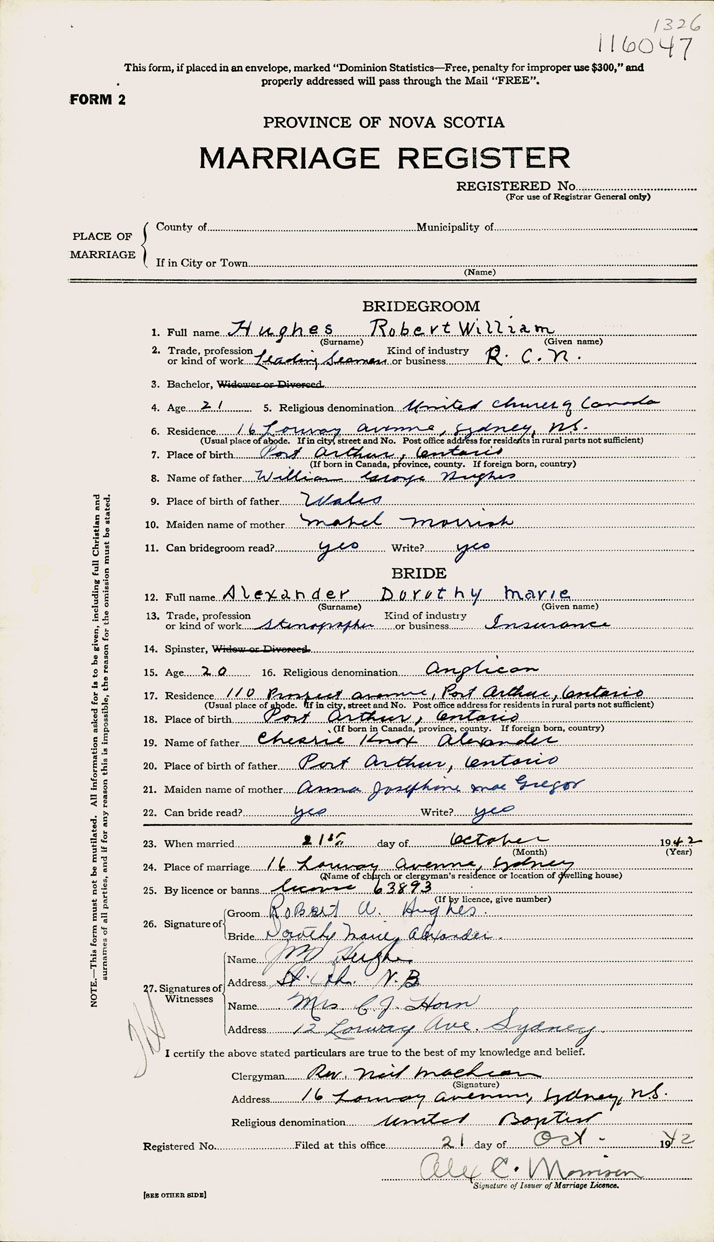 1326
116047
This form, if placed in an envelope, marked "Dominion Statistics—Free, penalty for improper use $300," and
properly addressed will pass through the Mail "FREE".
FORM 2
PROVINCE OF NOVA SCOTIA
MARRIAGE REGISTER
REGISTERED No.
(For use of Registrar General only)
PLACE OF MARRIAGE
County of Municipality of
If in City or Town
(Name)
BRIDEGROOM
1. Full name Hughes Robert William
(Surname) (Given name)
2. Trade, profession or kind of work Leading Seaman Kind of industry or business R. C. N.
3. Bachelor, Widower or Divorced
4. Age 21 5. Religious denomination United Church of Canada
6. Residence 16 Lorway avenue, Sydney, N.S.
(Usual place of abode. If in city, street and No. Post office address for residents in rural parts not sufficient)
7. Place of birth Port Arthur, Ontario
(If born in Canada, province, county. If foreign born, country)
8. Name of father William George Hughes
9. Place of birth of father Wales
10. Maiden name of mother Mabel Morrish
11. Can bridegroom read? yes Write? yes
BRIDE
12. Full name Alexander Dorothy Marie
(Surname) (Given name)
13. Trade, profession or kind of work Stenographer Kind of industry or business Insurance
14. Spinster, Widow or Divorced
15. Age 20 16. Religious denomination Anglican
17. Residence 110 Prospect avenue, Port Arthur, Ontario
(Usual place of abode. If in city, street and No. Post office address for residents in rural parts not sufficient)
18. Place of birth Port Arthur, Ontario
(If born in Canada, province, county. If foreign born, country)
19. Name of father Knox Alexander
20. Place of birth of father Port Arthur, Ontario
21. Maiden name of mother Anna Josephine Mac Gregor
22. Can bride read? yes Write? yes
23. When married 21st day of October 1942
(Month) (Year)
24. Place of marriage 16 Lorway Avenue, Sydney
(Name of church or clergyman's residence or location of dwelling house)
25. By licence or banns license 63893
(If by licence, give number)
26. Signature of
Groom Robert W. Hughes.
Bride Dorothy Marie Alexander.
27. Signatures of Witnesses
Name Hughes
Address N.B
Name Mrs C. J. Horn
Address 12 Lorway Ave. Sydney.
I certify the above stated particulars are true to the best of my knowledge and belief.
Clergyman Rev. Neil MacLean
(Signature)
Address 16 Lorway avenue, Sydney, N.S.
Religious denomination United Baptist
Registered No. Filed at this office 21 day of Oct - 1942
Alex C. Morrison
Signature of Issuer of Marriage Licence.
[SEE OTHER SIDE]
NOTE.—This form must not be mutilated. All information asked for is to be given, including full Christian and
surnames of all parties, and if for any reason this is impossible, the reason for the omission must be stated.